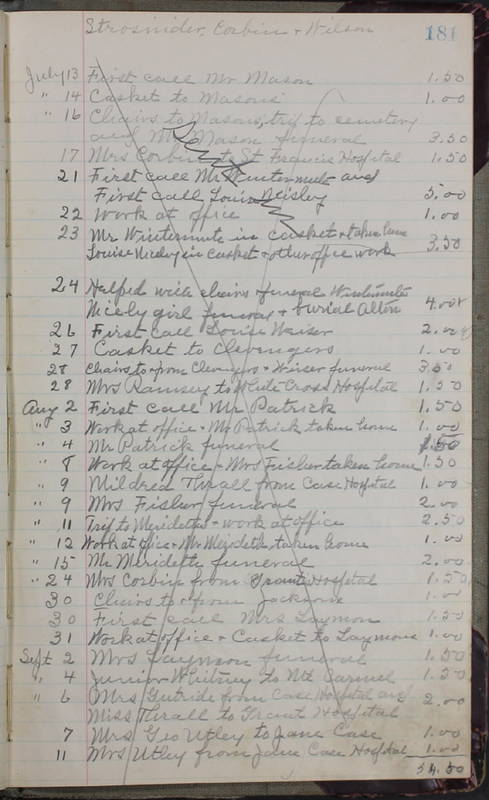 Strosnider, Corbin & Wilson
181
July 13 First call Mr Mason 1.50
" 14 Casket to Masons 1.00
" 16 Chairs to Masons, trip to cemetery
and Mr Mason funeral 3.50
17 Mrs Corbin to St Francis Hospital 1.50
21 First call Mr Wintermute and
First call Louise Nicely 5.00
22 Work at office 1.00
23 Mr Wintermute in casket & taken home
Louise Nicely in Casket & other office work 3.50
24 Helped with chairs & funeral Wintermute
Nicely girl funeral & burial 4.00
26 First call Louise Weiser 2.00
27 Casket to Clevengers 1.00
28 Chairs to & from Clevengers & Weiser funeral 3.50
28 Mrs Ramsey to White Cross Hospital 1.50
Aug 2 First call Mr Patrick 1.50
" 3 Work at office & Mr Patrick taken home 1.00
" 4 Mr Patrick funeral 1.50
" 8 Work at office & Mrs Fisher taken home 1.50
" 9 Mildred Thrall from Case Hospital 1.00
" 9 Mrs Fisher funeral 2.00
" 11 Trip to Merideths & work at office 2.50
" 12 Work at office & Mr Merideth taken home 1.00
" 15 Mr Merideth funeral 2.00
" 24 Mrs Corbin from Grant Hospital 1.50
30 Chairs to & from Jacksons 1.00
30 First call Mrs Laymon 1.50
31 Work at office & Casket to Laymons 1.00
Sept 2 Mrs Laymon funeral 1.50
" 4 Junior Whitney to Mt Carmel 1.50
" 6 Mrs Gutride from Case Hospital and
Miss Thrall to Grant Hospital 2.00
7 Mrs Geo Utley to Jane Case 1.00
11 Mrs Utley from Jane Case Hospital 1.00